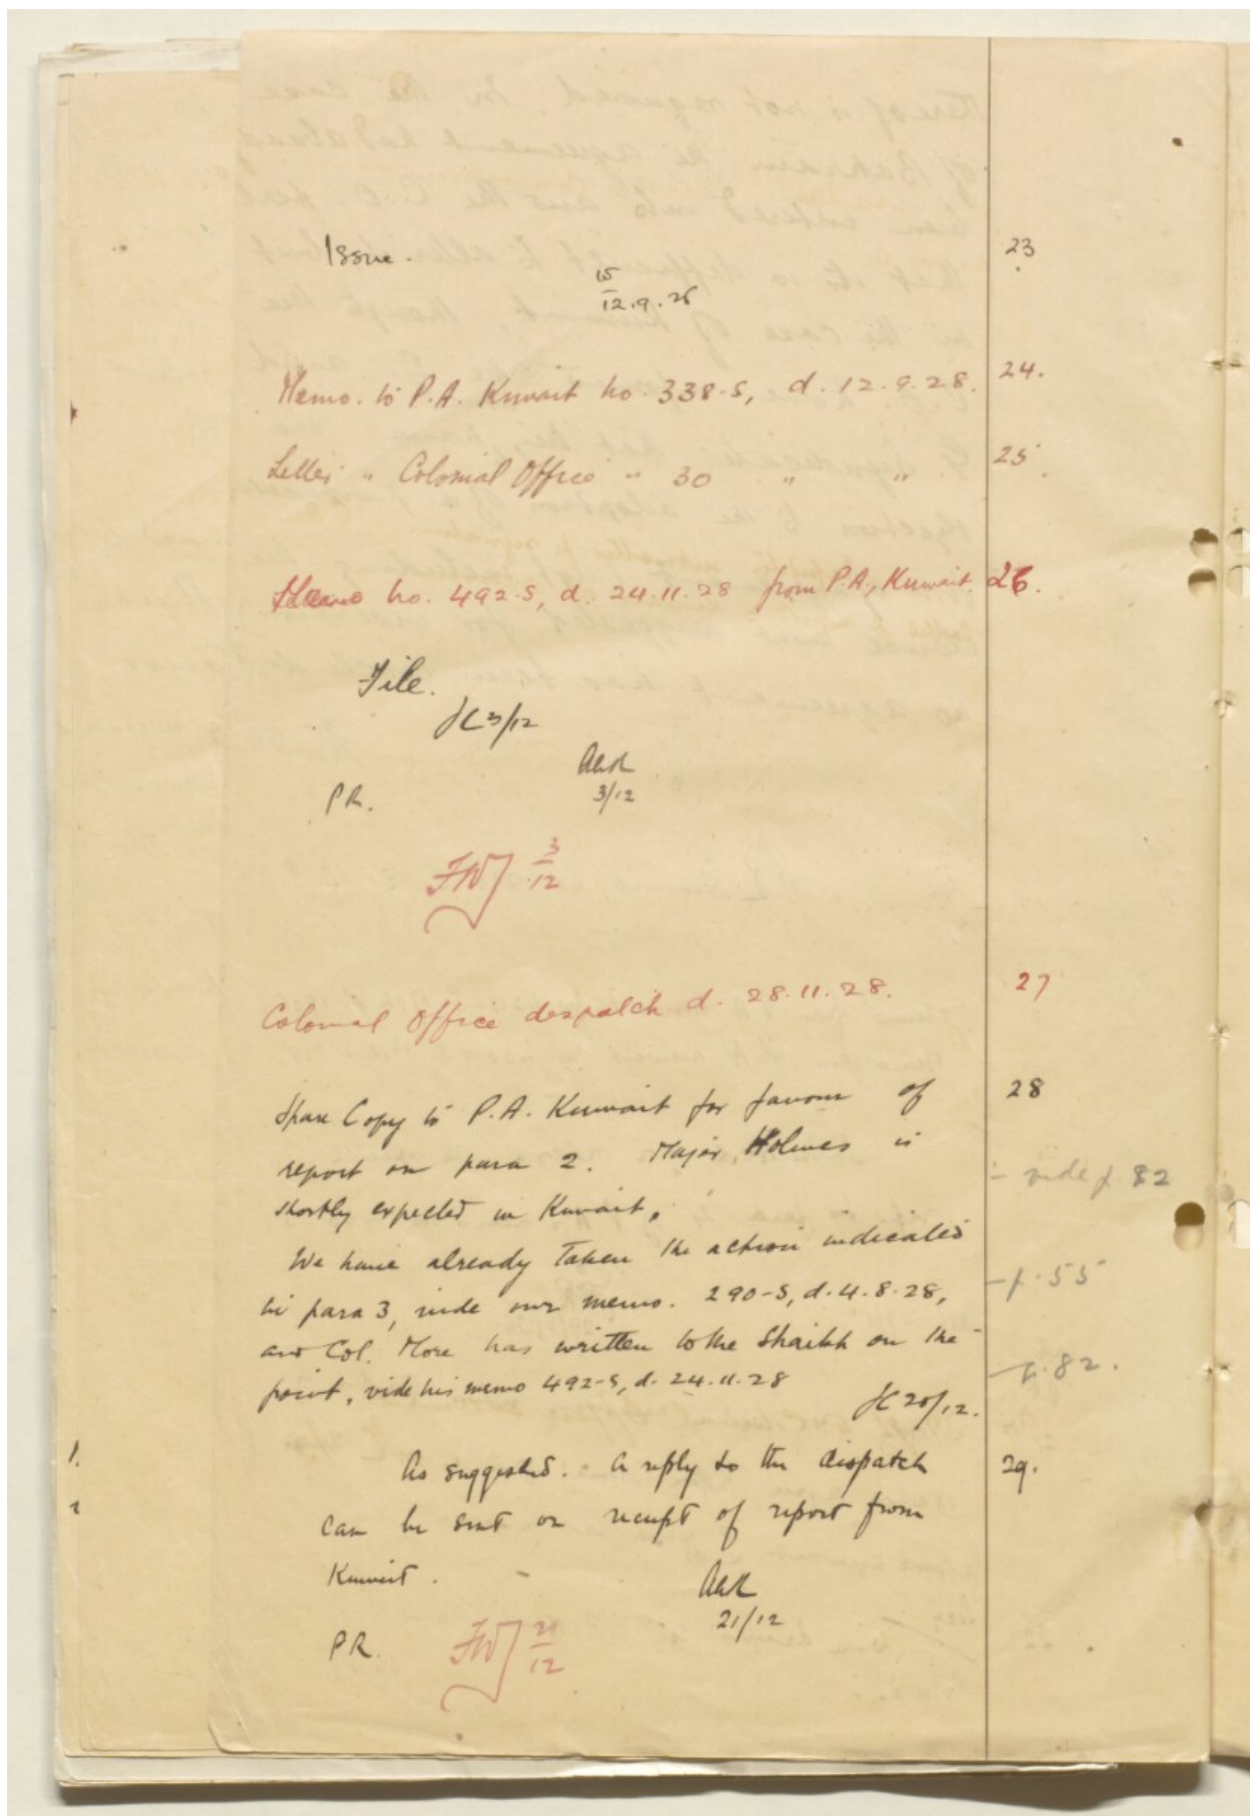 Issue. 23
12.9.28
Memo. to P.A. Kuwait no. 338-S, d. 12.9.28. 24.
Letter " Colonial Office " 30 " " 25
Memo no. 492-S, d. 24.11.28 from P.A., Kuwait. 26.
File.
3/12
3/12
PR.
3/12
Colonial Office despatch d. 28.11.28. 27
Spare Copy to P.A. Kuwait for favour of 28
report on para 2. Major Holmes is
- vide p 82
shortly expected in Kuwait.
We have already taken the action indicated
- p. 55
in para 3, vide our memo. 290-S, d. 4.8.28,
and Col. More has written to the Shaikh on the
- p. 82.
point, vide his memo 492-S, d. 24.11.28
20/12.
As suggested. - A reply to the dispatch 29.
can be sent on receipt of report from
Kuwait.
21/12
PR.
21/12